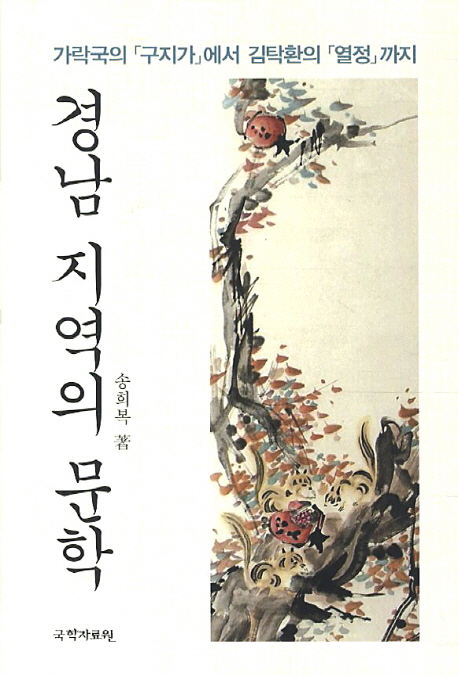 가락국의 「구지가」에서 김탁환의 「열정」까지
경남 지역의 문학
송희복 著
국학자료원